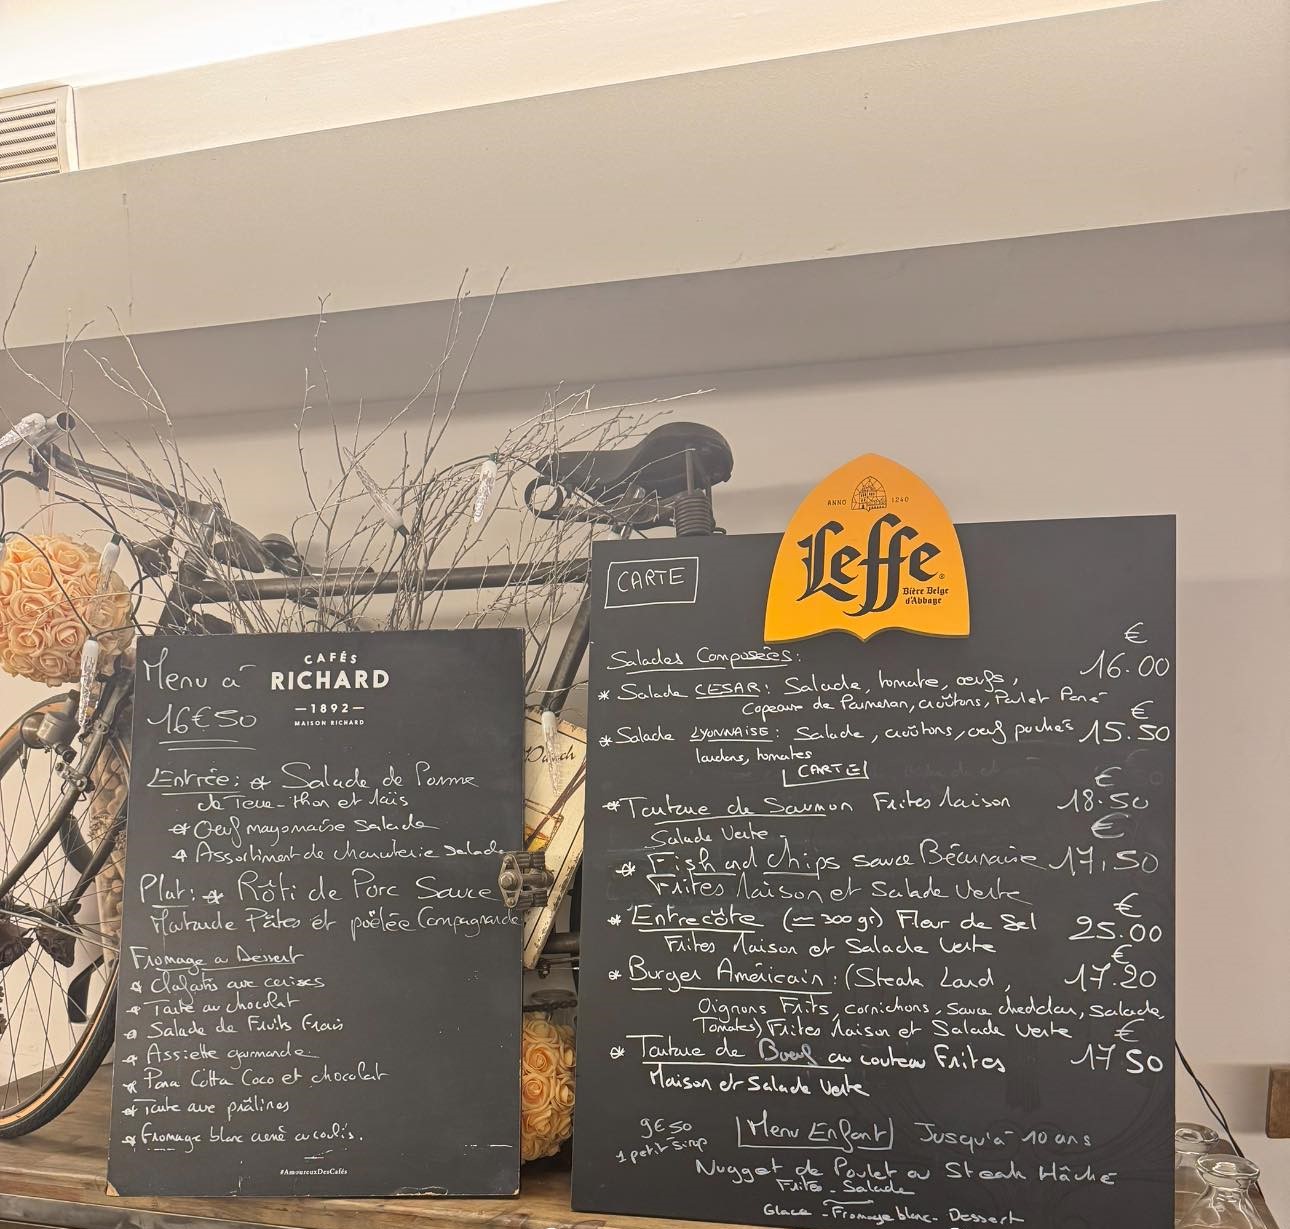 Menu à
16€50
CAFÉS
RICHARD
1892
MAISON RICHARD
Entrée: * Salade de Pomme
de Terre - thon et Maïs
* Oeuf mayonnaise salade
* Assortiment de charcuterie salade
Plat: * Rôti de Porc Sauce
Moutarde Pâtes et poêlée Campagnarde
Fromage ou Dessert
* Clafoutis aux cerises
* Tarte au chocolat
* Salade de Fruits Frais
* Assiette gourmande
* Pana Cotta Coco et chocolat
* Tarte aux pralines
* Fromage blanc crème ou coulis.
#AmoureuxDesCafés
CARTE
ANNO 1240
Leffe
Bière Belge
d'Abbaye
Salades Composées:
€
* Salade CESAR: Salade, tomate, œufs, 16.00
Copeaux de Parmesan, croûtons, Poulet Pané
€
* Salade LYONNAISE: Salade, croûtons, œuf pochés 15.50
lardons, tomates
CARTE
€
* Tartare de Saumon Frites Maison 18.50
Salade Verte -
€
* Fish and chips sauce Béarnaise 17,50
Frites Maison et Salade Verte
€
* Entrecôte (≃ 300 gr) Fleur de Sel 25.00
Frites Maison et Salade Verte
€
* Burger Américain: (Steak Lard, 17.20
Oignons Frits, cornichons, Sauce cheddar, Salade
Tomates) Frites Maison et Salade Verte
€
* Tartare de Boeuf au couteau Frites 17 50
Maison et Salade Verte
9€50 Menu Enfant Jusqu'à 10 ans
1 petit sirop
Nugget de Poulet ou Steak Hâché
Frites - Salade
Glace - Fromage blanc - Dessert